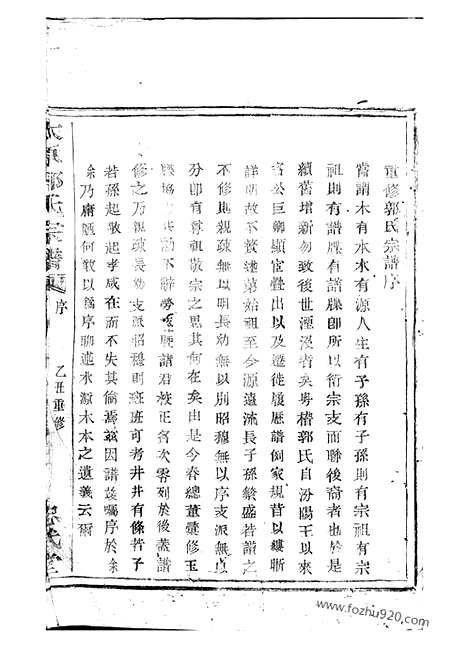 重修郭氏宗譜序
嘗謂木有本水有源人生有子孫有子孫則有宗祖有宗
祖則有譜牒有譜牒卽所以衍宗支而聯後裔者也於是
續舊增新勿致後世湮沒者矣粵稽郭氏自汾陽王以來
名公巨卿顯宦疊出以及遷徙履歷譜例家規昔以縷晰
詳明故不贅述第始祖至今源遠流長子孫繁盛若譜之
不修則親疎無以明長幼無以別昭穆無以序支派無貞
分卽有尊祖敬宗之思其何在矣由是今春總董彙修玉
協 其勤不辭勞 諸君校正名次零列於後蓋譜
修之乃親疎長幼支派昭穆則班班可考井井有條皆子
若孫起敬起孝咸在而不失其倫焉茲因譜竣囑序於余
余乃庸陋何敢以爲序聊述水源木本之遺義云爾
太原郭氏宗譜 序 乙丑重修 堂
www.fozhu920.com